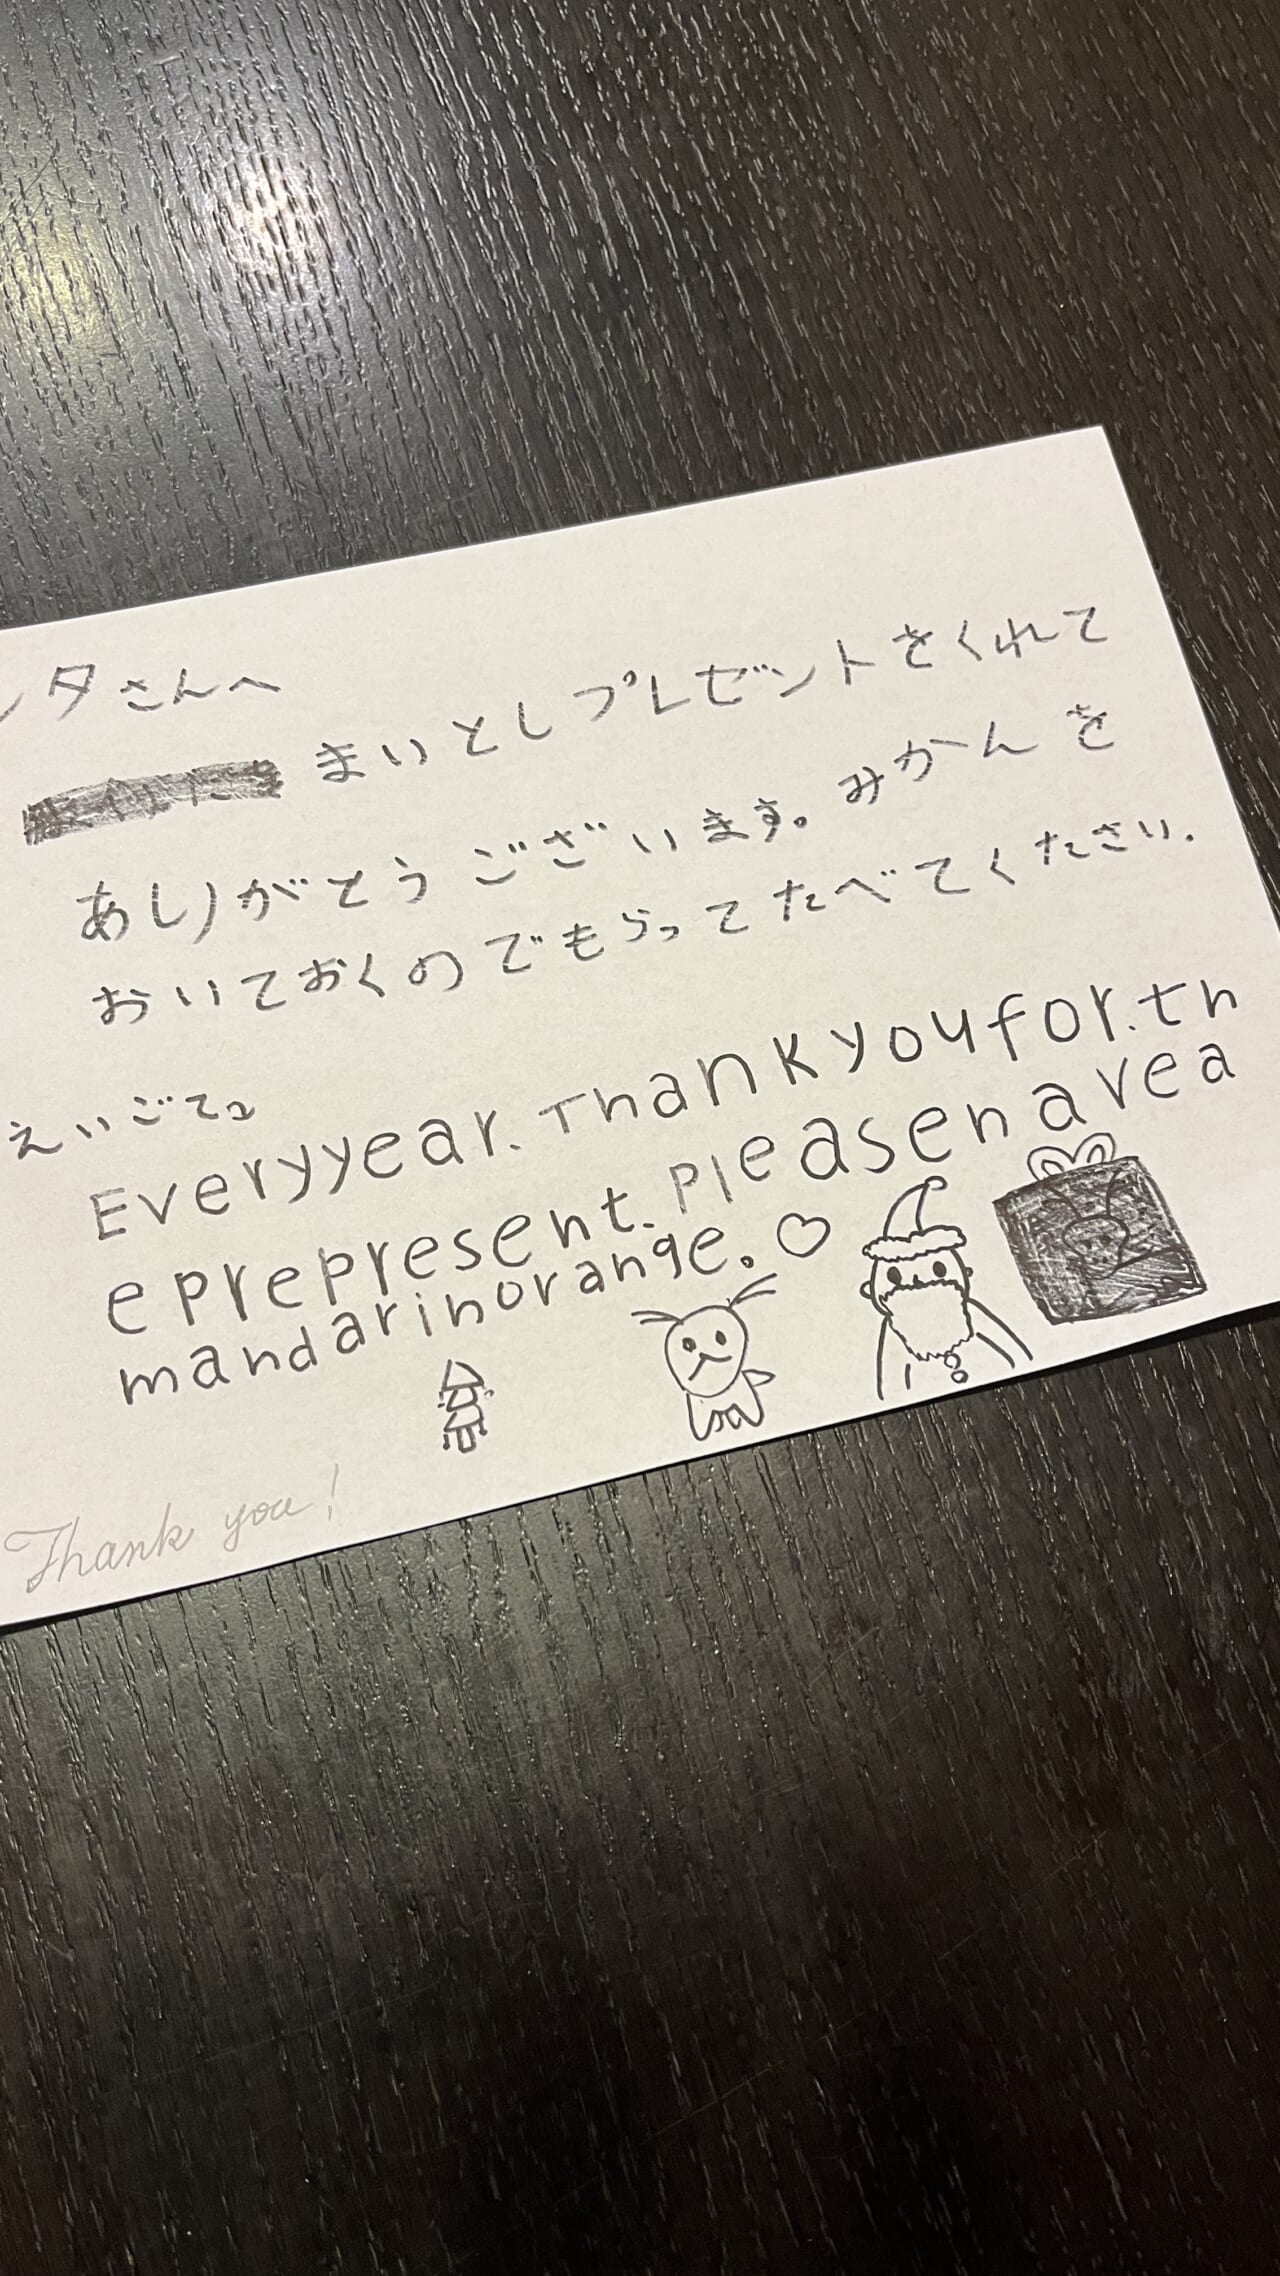 ンタさんへ
まいとしプレゼントをくれて
ありがとうございます。みかんを
おいておくのでもらってたべてくたさい.
えいごでっ
Everyyear. Thankyoufor.th
eprepresent. pleasenavea
mandarinorange.♡
Thank you!